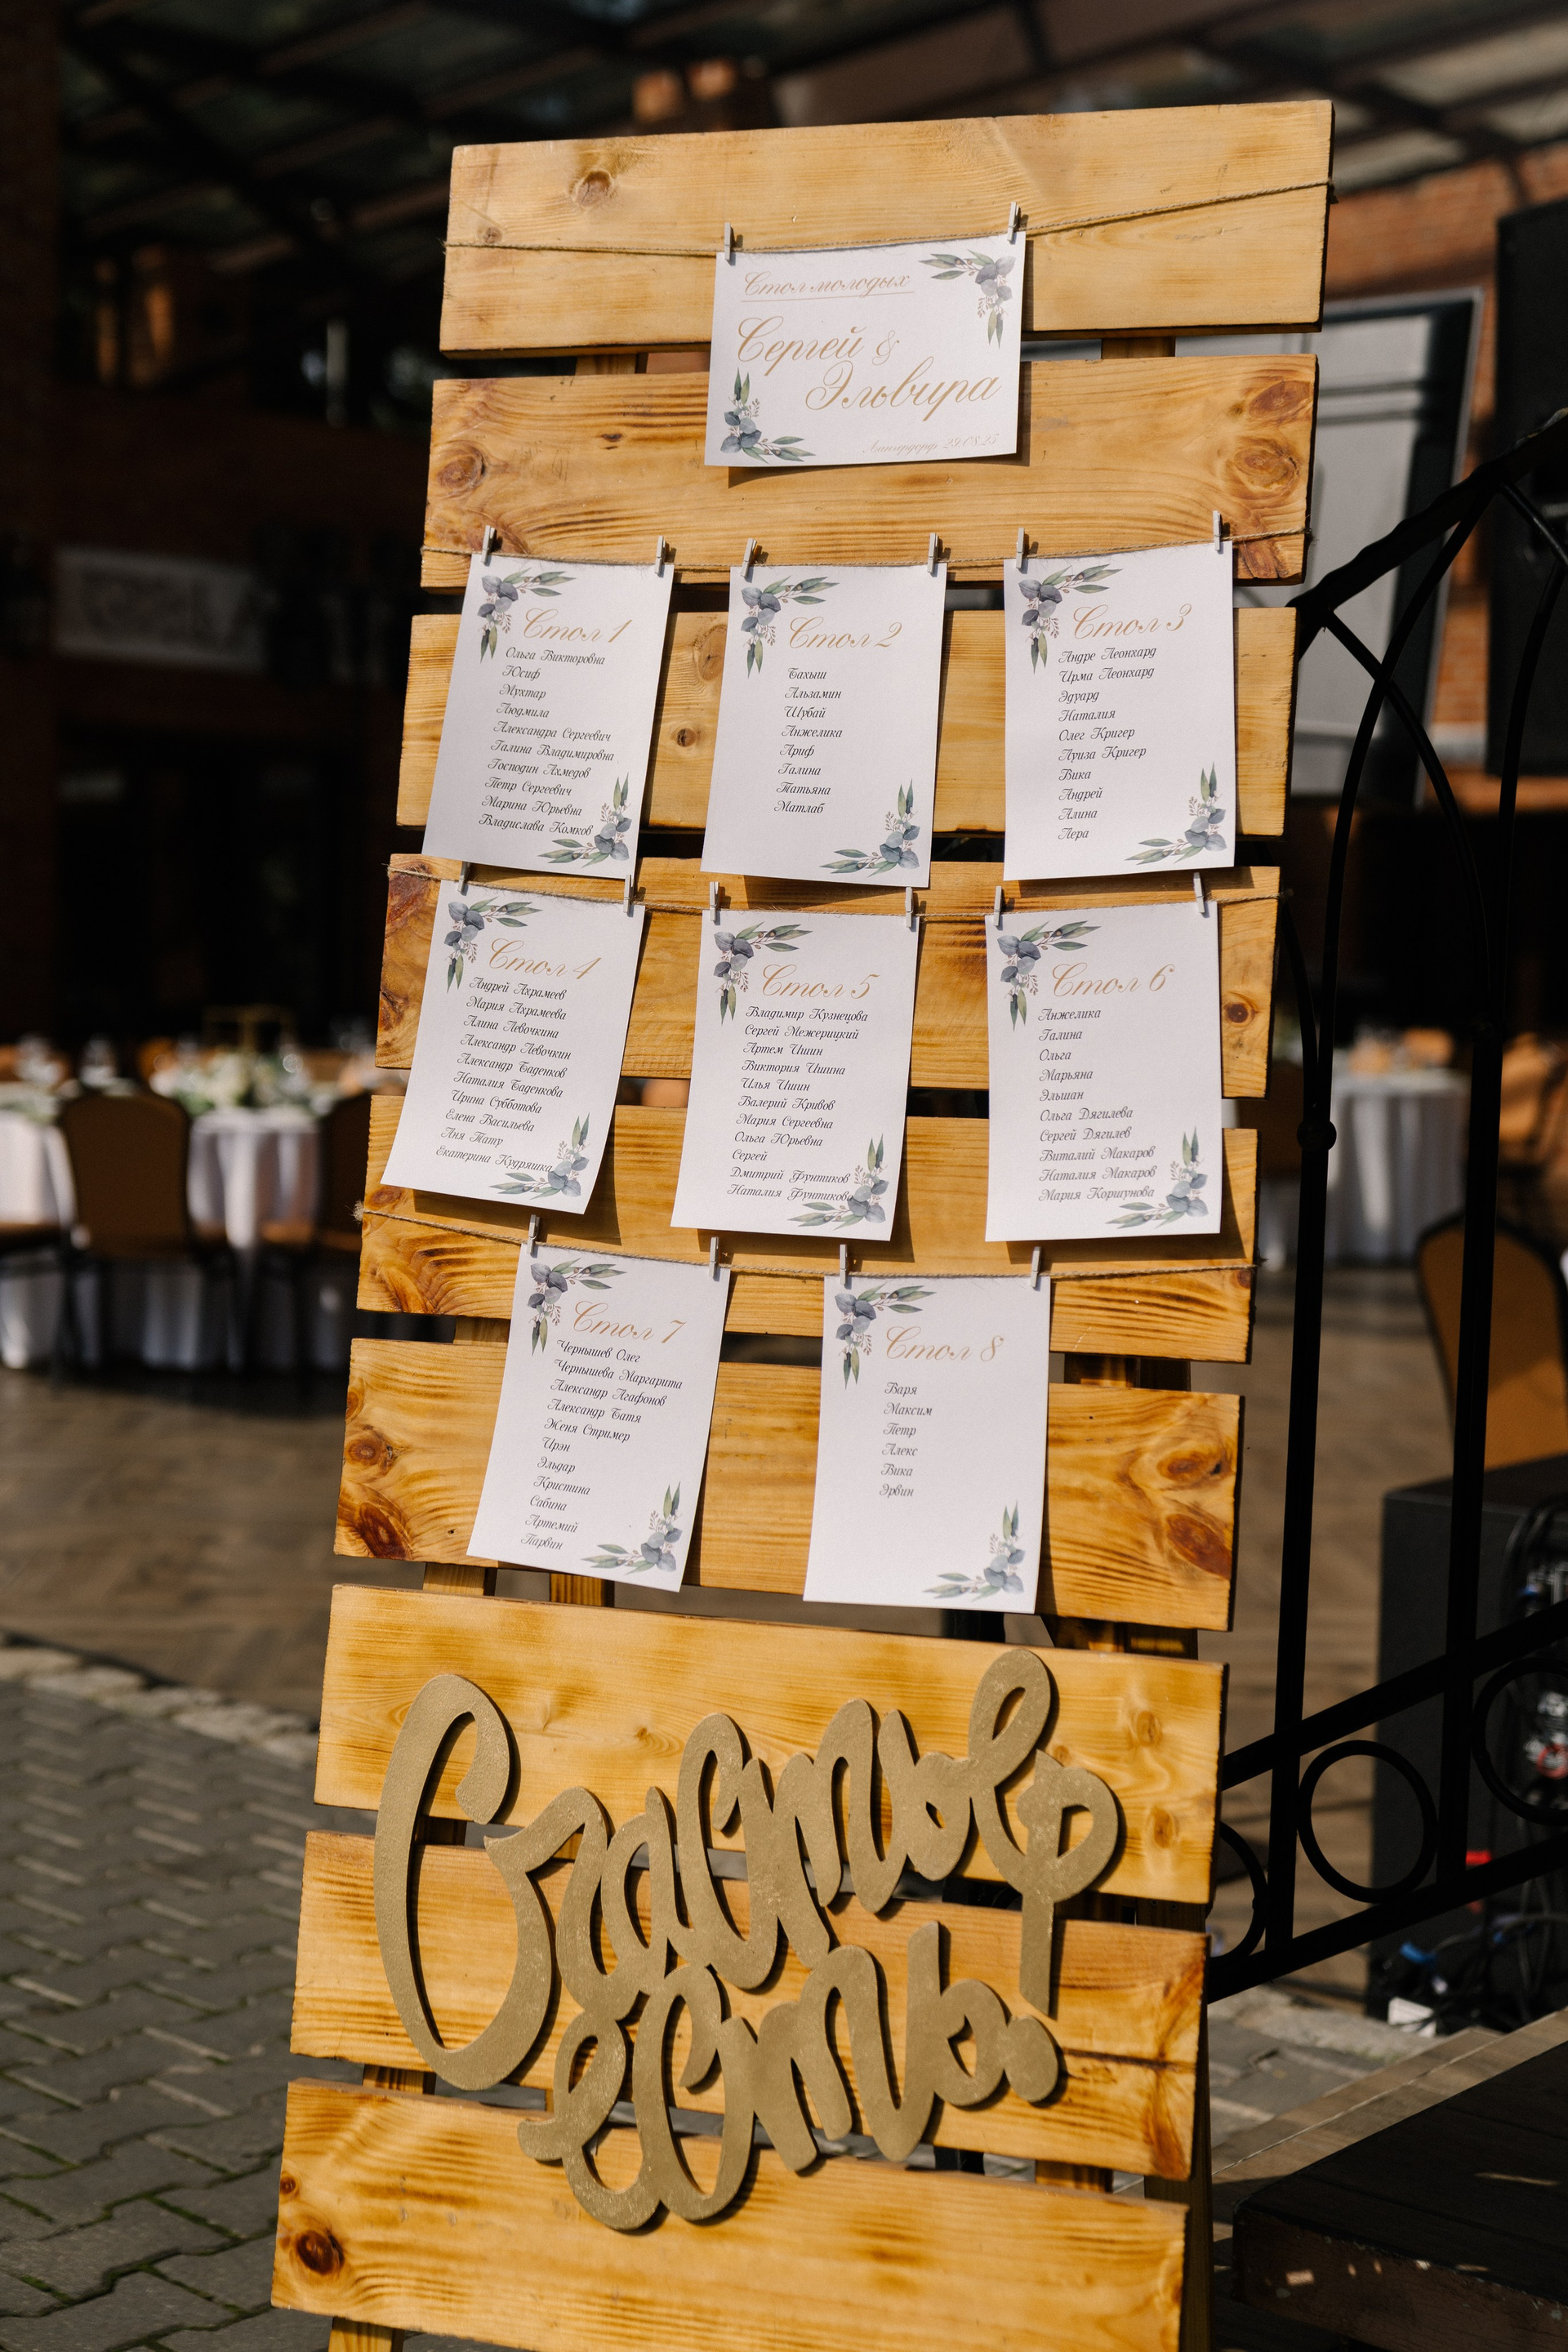 Стол молодых
Сергей &
Эльвира
Лангендорф 29.08.25
Стол 1
Ольга Викторовна
Юсиф
Мухтар
Людмила
Александра Сергеевич
Галина Владимировна
Господин Ахмедов
Петр Сергеевич
Марина Юрьевна
Владислава Комков
Стол 2
Бахыш
Альзамин
Шубай
Анжелика
Ариф
Галина
Татьяна
Матлаб
Стол 3
Андре Леонхард
Ирма Леонхард
Эдуард
Наталия
Олег Кригер
Луиза Кригер
Вика
Андрей
Алина
Лера
Стол 4
Андрей Ахрамеев
Мария Ахрамеева
Алина Левочкина
Александр Левочкин
Александр Баденков
Наталия Баденкова
Ирина Субботова
Елена Васильева
Аня Тату
Екатерина Кудряшка
Стол 5
Владимир Кузнецова
Сергей Межерицкий
Артем Ишин
Виктория Ишина
Илья Ишин
Валерий Кривов
Мария Сергеевна
Ольга Юрьевна
Сергей
Дмитрий Фунтиков
Наталия Фунтикова
Стол 6
Анжелика
Галина
Ольга
Марьяна
Эльшан
Ольга Дягилева
Сергей Дягилев
Виталий Макаров
Наталия Макаров
Мария Коршунова
Стол 7
Чернышев Олег
Чернышева Маргарита
Александр Агафонов
Александр Батя
Женя Стример
Ирэн
Эльдар
Кристина
Сабина
Артемий
Парвин
Стол 8
Варя
Максим
Петр
Алекс
Вика
Эрвин
Счастье
есть.